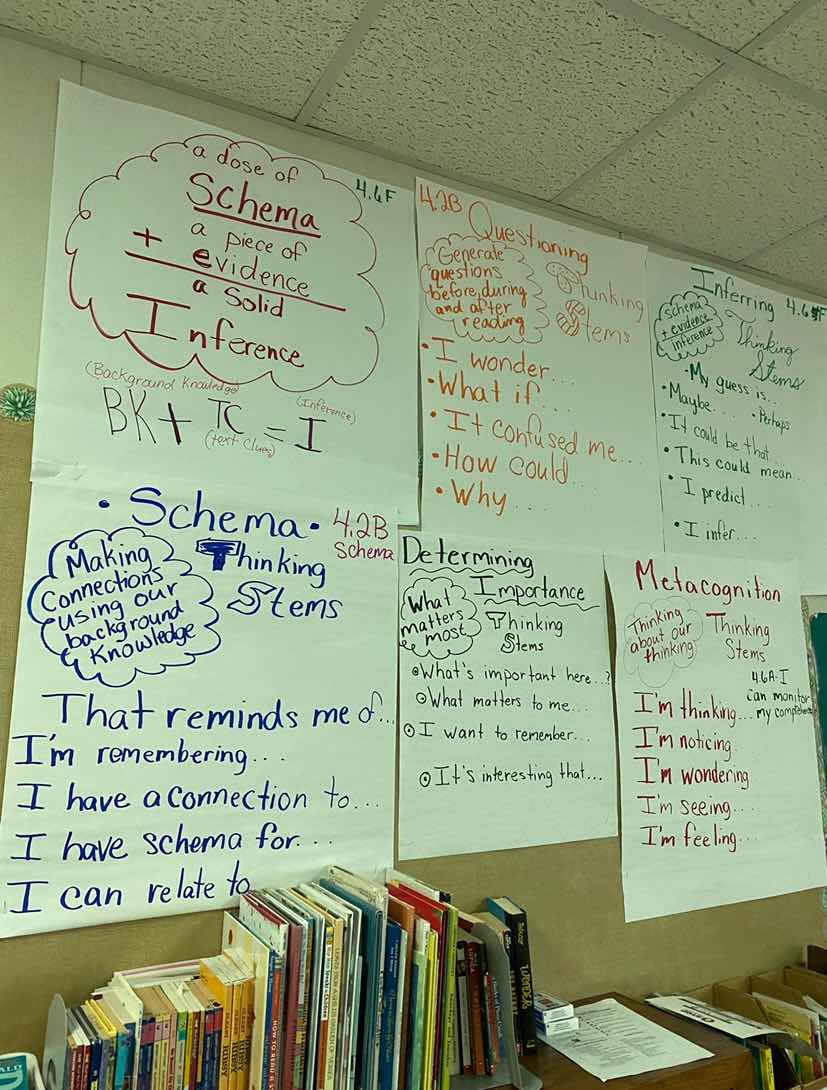 a dose of
Schema
a piece of
+ evidence
a Solid
Inference
4.6F
(Background Knowledge)
(Inference)
BK + TC = I
(text clues)
4.2B
Questioning
Generate
questions
before, during
and after
reading
Thinking
Stems
• I wonder...
• What if...
• It confused me...
• How could...
• Why...
Inferring
4.6F
schema
+ evidence
inference
Thinking
Stems
• My guess is...
• Maybe... • Perhaps
• It could be that...
• This could mean...
• I predict...
• I infer...
• Schema •
4.2B
Schema
Making
Connections
using our
background
Knowledge
Thinking
Stems
That reminds me of...
I'm remembering...
I have a connection to...
I have schema for...
I can relate to
Determining
Importance
What
matters
most
Thinking
Stems
What's important here...?
What matters to me...
I want to remember...
It's interesting that...
Metacognition
Thinking
about our
thinking
Thinking
Stems
4.6A. I
can monitor
my
I'm thinking...
I'm noticing..
I'm wondering
I'm seeing...
I'm feeling...